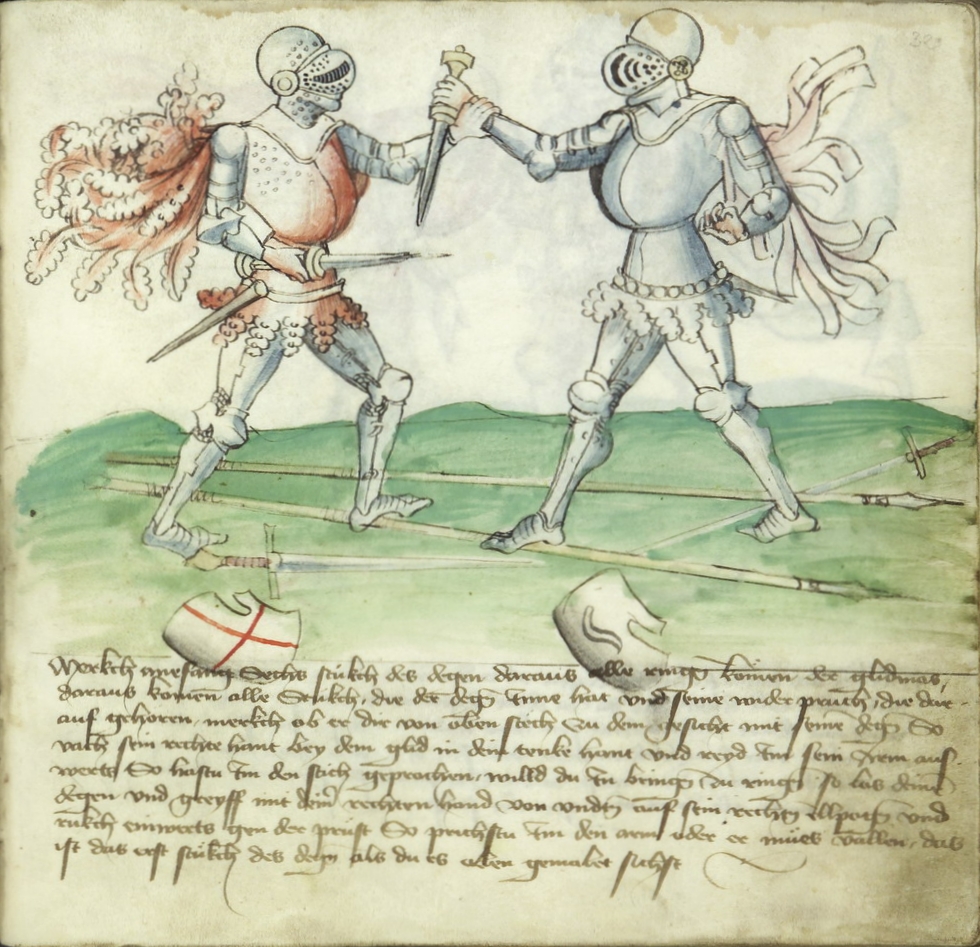 Merkch Sechs stukch des degen daraus alle ringen komen der glidmas,
daraus komen alle Stukch, die der degn Inne hat vnd seine wider pruch, die dar
auf gehoren, merkch ob er dir von oben stech zu dem gesicht mit seinē degn So
vach sein rechte hant bey dem glid in dein tenke hant vnd reyd Im sein Arem aus
werts So hastu Im den stich geprochen, willd du In bringen zu ringen so las deinē
degen vnd greyff mit deinē rechten hand von vndtn auf sein rechtn ellpogn vnd
rukch einwerts gen der prust So prichstu Im den arm oder er mues vallen, das
ist das erst stukch des degn als du es oben gemalet sichst